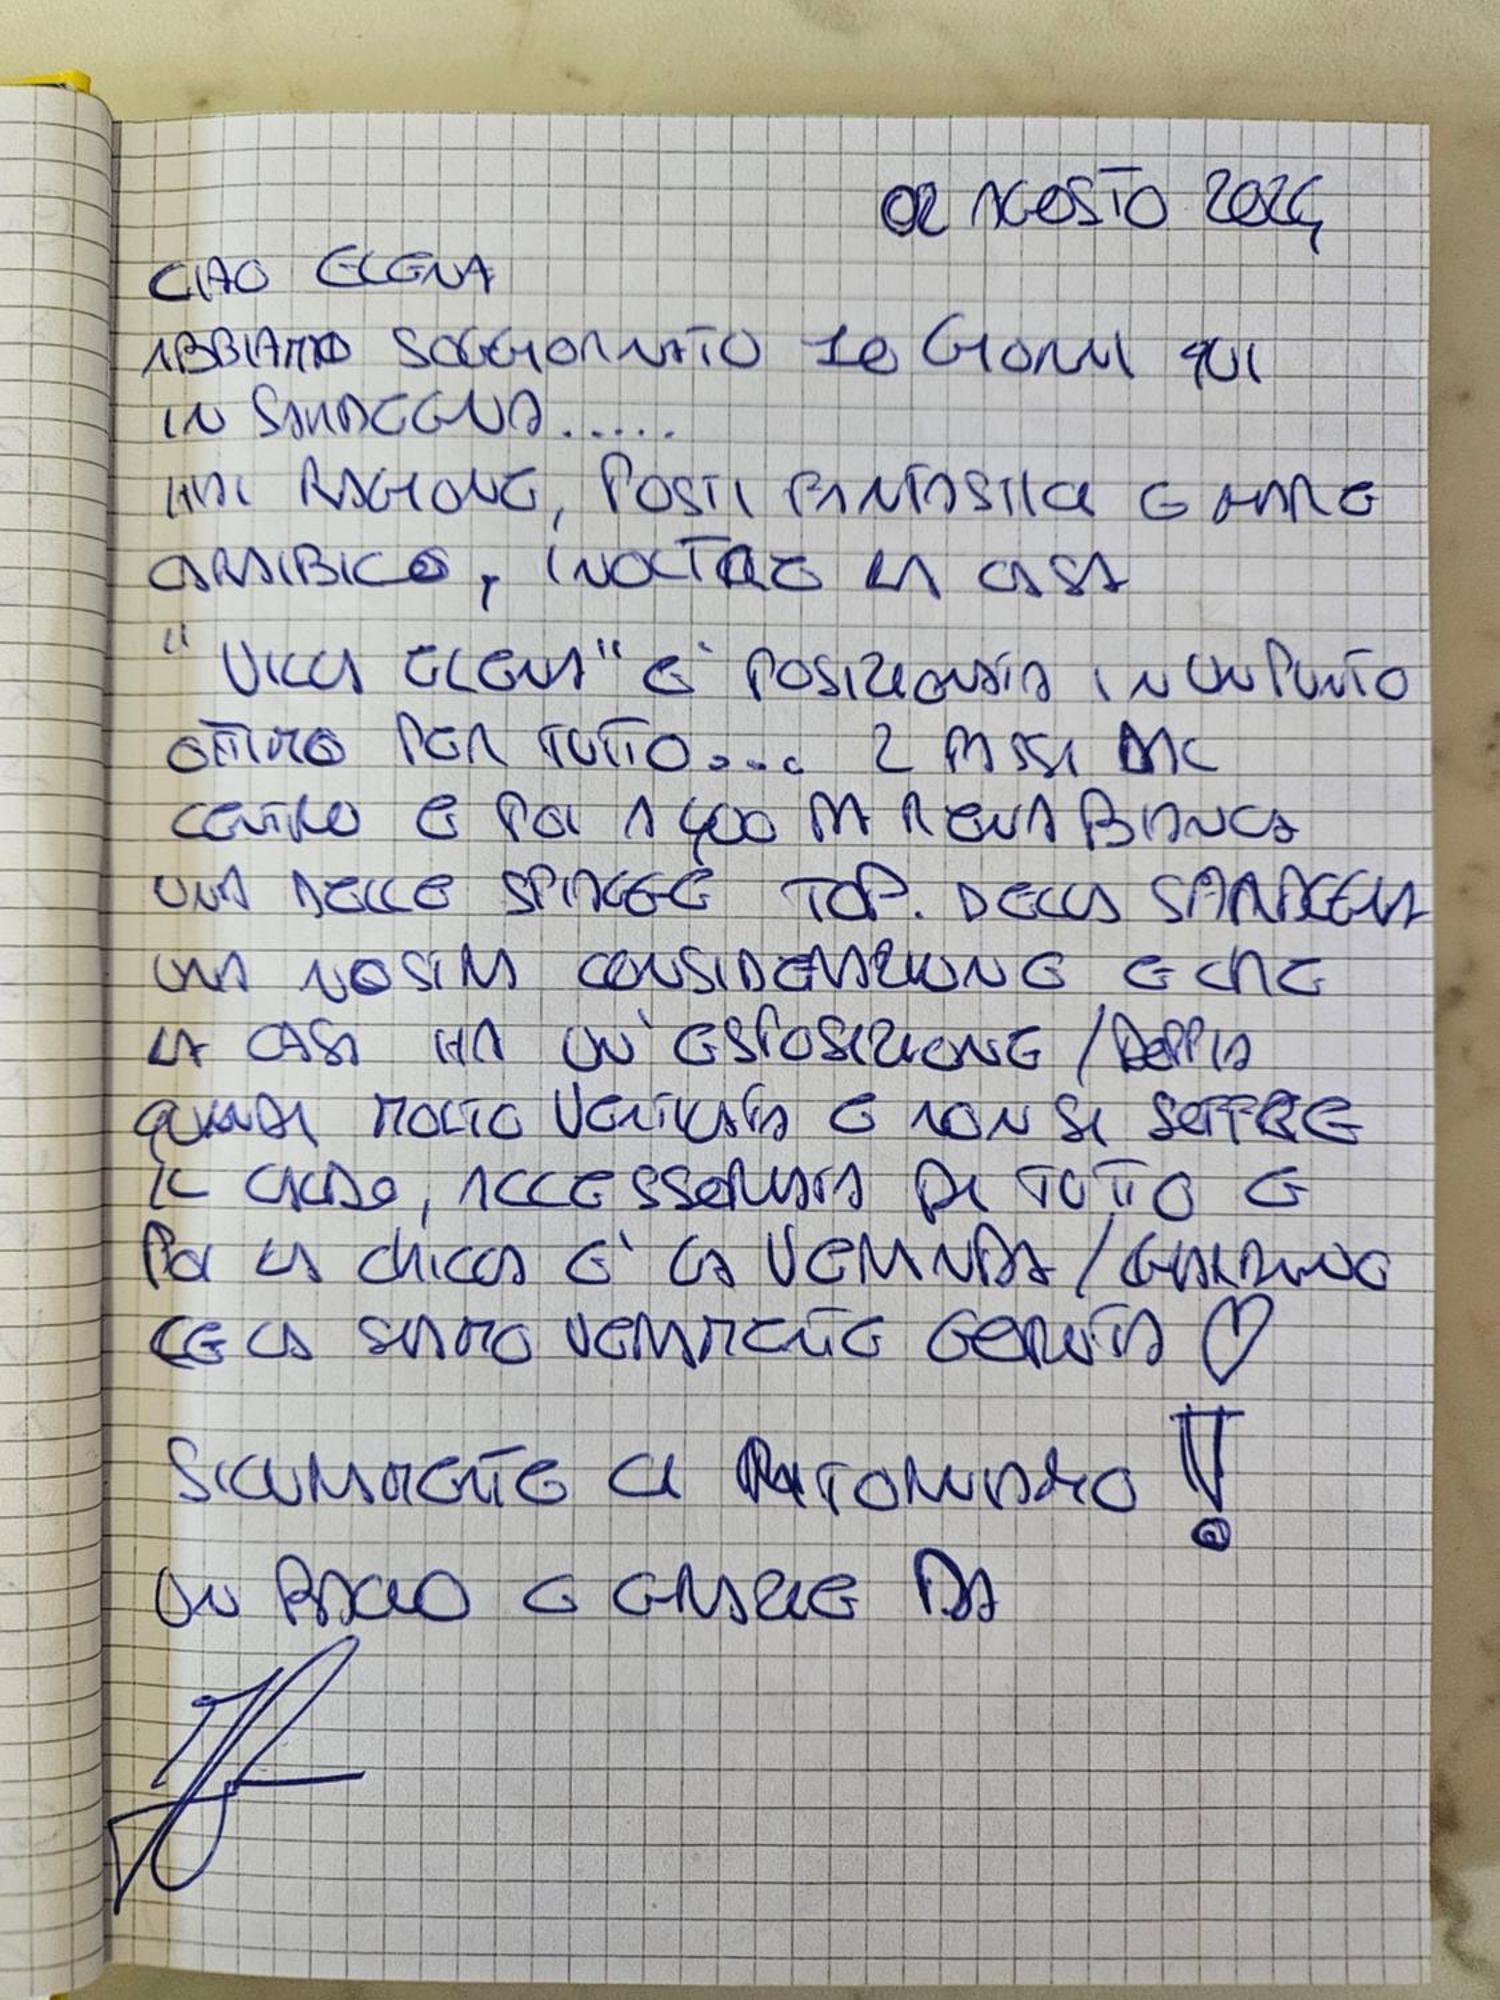 02 AGOSTO 2024
CIAO ELENA
ABBIAMO SOGGIORNATO 10 GIORNI QUI
IN SARDEGNA.....
HAI RAGIONE, POSTI FANTASTICI E MARE
CARAIBICO, INOLTRE LA CASA
"VILLA ELENA" E' POSIZIONATA IN UN PUNTO
OTTIMO PER TUTTO.... 2 PASSI DAL
CENTRO E POI A 400 M RENA BIANCA
UNA DELLE SPIAGGE TOP. DELLA SARDEGNA
UNA NOSTRA CONSIDERAZIONE E CHE
LA CASA HA UN'ESPOSIZIONE / DOPPIA
QUINDI MOLTO VENTILATA E NON SI SOFFRE
IL CALDO, ACCESSORIATA DI TUTTO E
POI LA CHICCA E' LA VERANDA / GIARDINO
CE LA SIAMO VERAMENTE GODUTA ♡
SICURAMENTE CI RITORNIAMO !
UN BACIO E GRAZIE DA